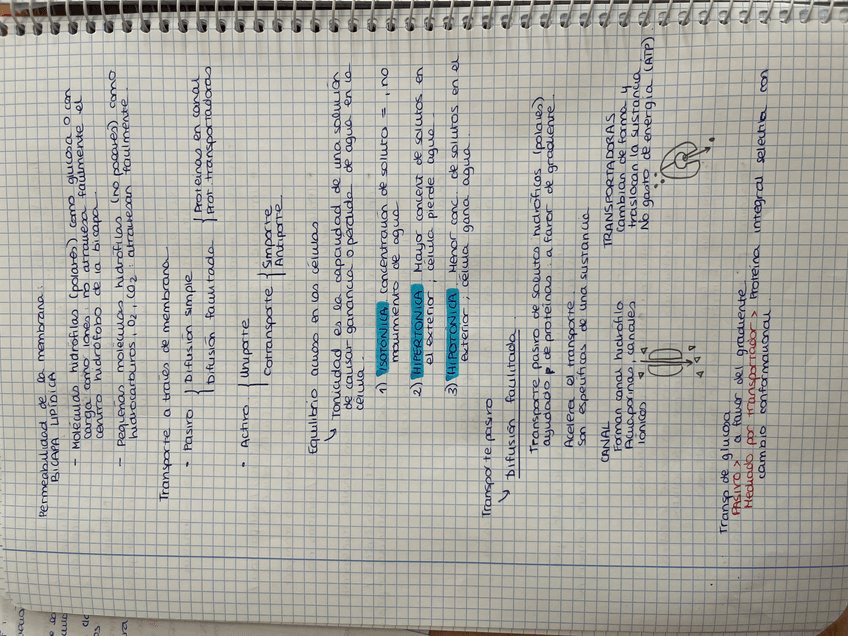 Permeabilidad de la membrana:
BICAPA LIPÍDICA
- Moléculas hidrófilas (polares) como glucosa o con
carga como iones no atraviesa fácilmente el
centro hidrófobo de la bicapa.
- Pequeñas moléculas hidrófilas (no polares) como
hidrocarburos, O2, CO2 atraviesan fácilmente.
Transporte a través de membrana
• Pasivo { Difusión simple
Difusión facilitada { Proteínas en canal
Prot transportadoras
• Activo { Uniporte
Cotransporte { Simporte
Antiporte.
Equilibrio acuoso en las células
↳ Tonicidad es la capacidad de una solución
de causar ganancia o pérdida de agua en la
célula.
1) ISOTÓNICA Concentración de soluto = , no
movimiento de agua
2) HIPERTÓNICA Mayor concent de solutos en
el exterior, célula pierde agua
3) HIPOTÓNICA Menor conc. de solutos en el
exterior; célula gana agua.
Transporte pasivo
↳ Difusión facilitada
Transporte pasivo de solutos hidrófilicas (polares)
ayudado p de proteínas a favor de gradiente.
Acelera el transporte
son específicas de una sustancia
CANAL
Forman canal hidrófilo
Acuaporinas, canales
iónicos
TRANSPORTADORAS
Cambian de forma y
traslocan la sustancia.
No gasto de energía (ATP)
Transp de glucosa
PASIVO > a favor del gradiente
Mediado por transportador > Proteína integral selectiva con
cambio conformacional